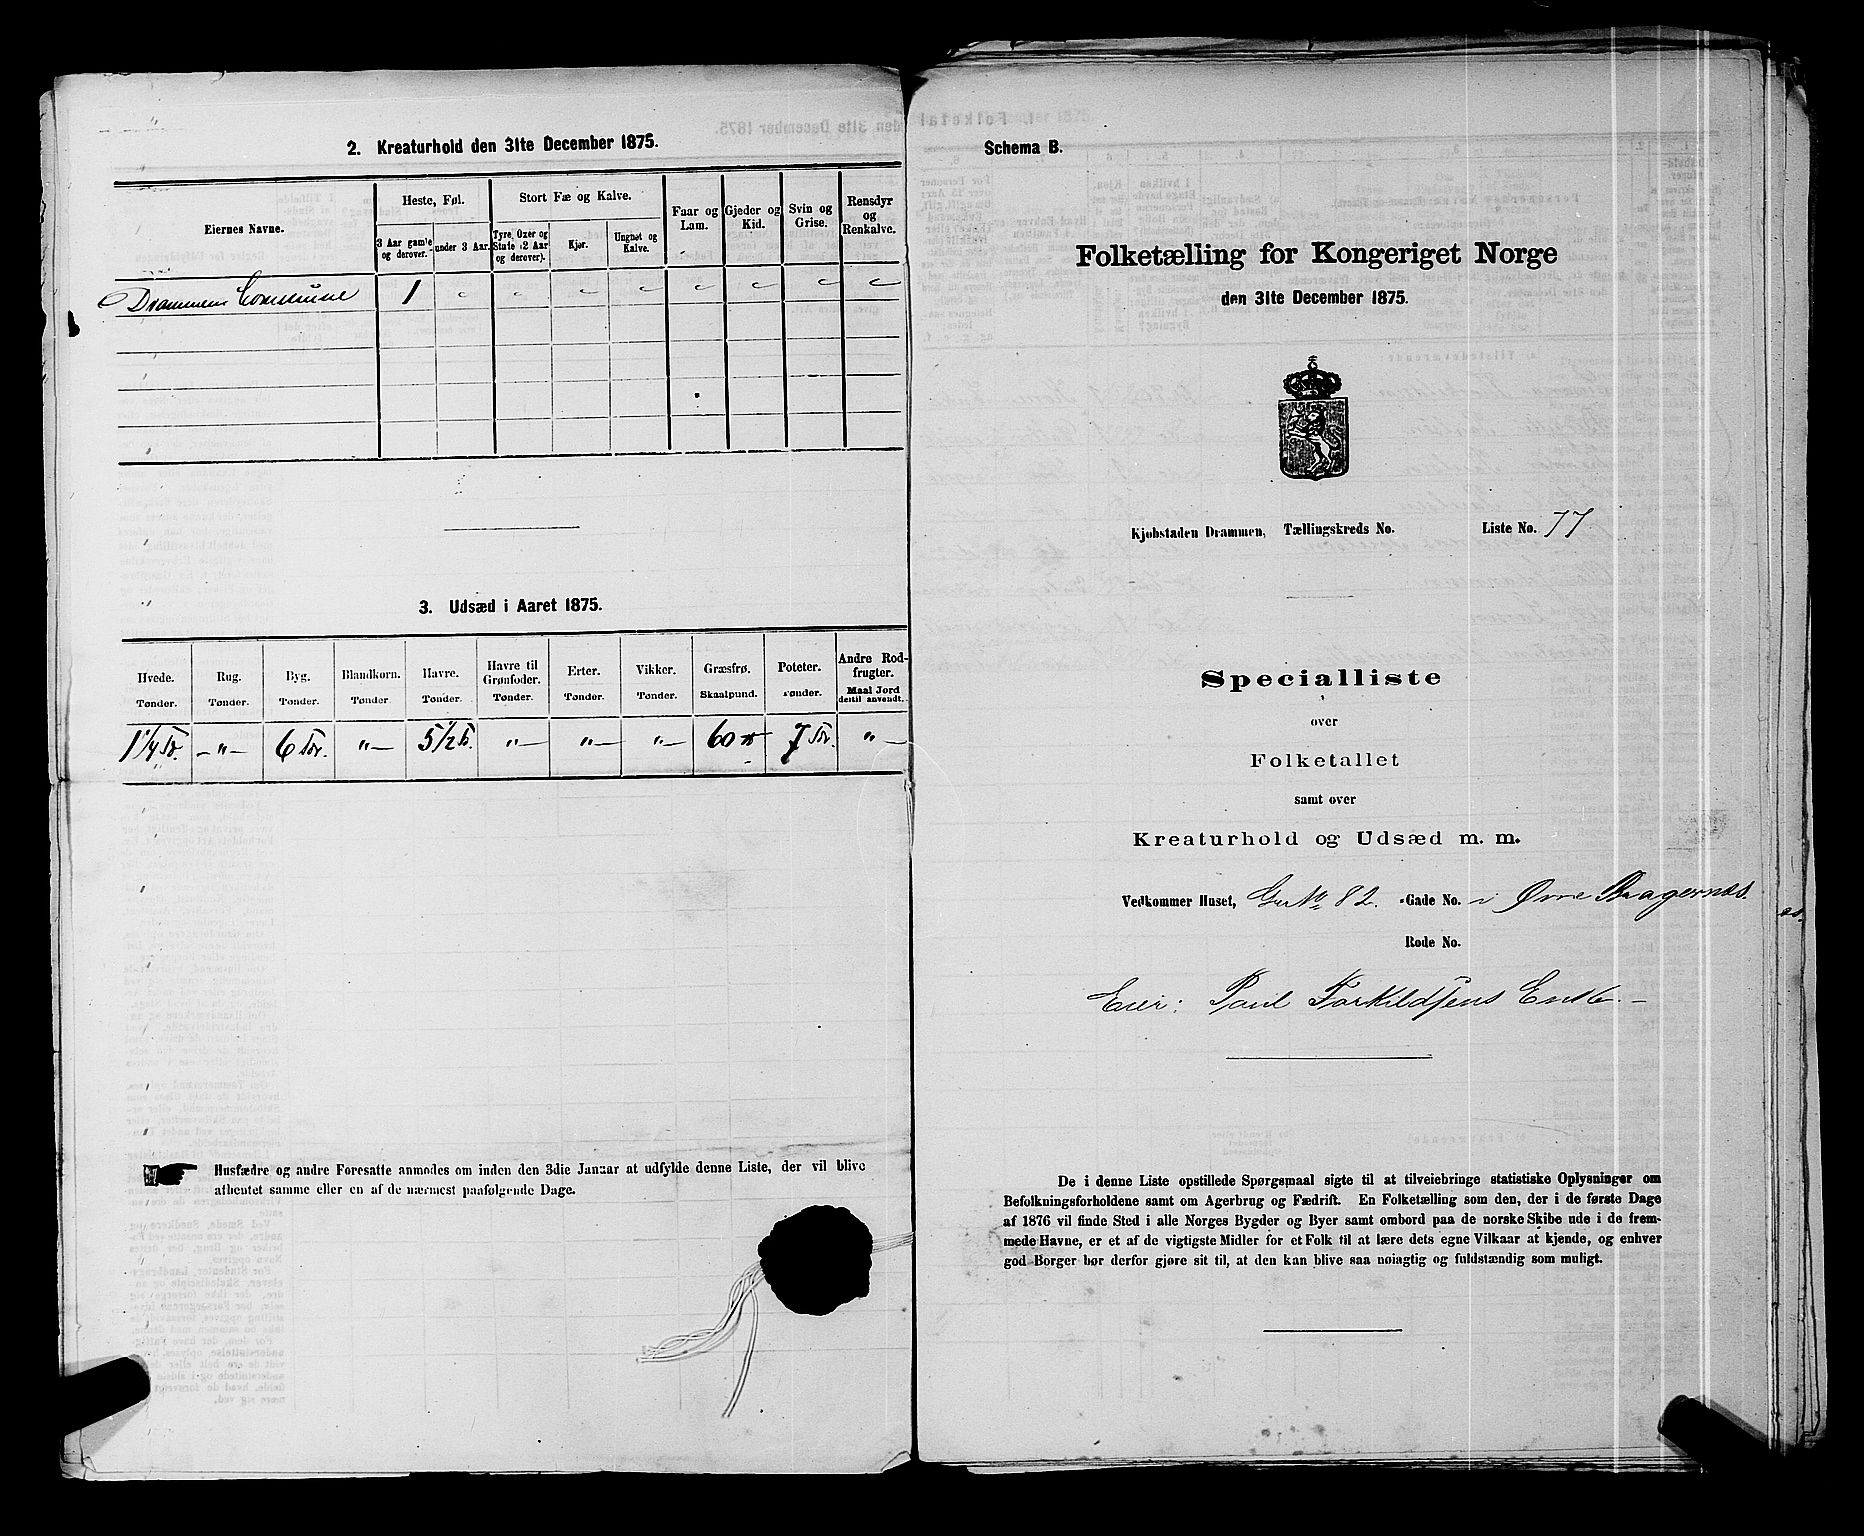 2. Kreaturhold den 31te December 1875.
Eiernes Navne.
Heste, Føl.
Stort Fæ og Kalve.
Faar og Lam.
Gjeder og Kid.
Svin og Grise.
Rensdyr og Renkalve.
3 Aar gamle og derover.
under 3 Aar.
Tyre, Oxer og Stude (2 Aar og derover).
Kjør.
Ungnøt og Kalve.
Drammens Commune 1 " " " " " " " "
3. Udsæd i Aaret 1875.
Hvede. Rug. Byg. Blandkorn. Havre. Havre til Grønfoder. Erter. Vikker. Græsfrø. Poteter. Andre Rodfrugter.
Tønder. Tønder. Tønder. Tønder. Tønder. Tønder. Tønder. Tønder. Skaalpund. Tønder. Maal Jord dertil anvendt.
1 1/4 Tr. -"- 6 Tdr. "- 5 1/2 T. "- "- "- 60 7 Tdr. "-
Husfædre og andre Foresatte anmodes om inden den 3die Januar at udfylde denne Liste, der vil blive
afhentet samme eller en af de nærmest paafølgende Dage.
Schema B.
Folketælling for Kongeriget Norge
den 31te December 1875.
Kjøbstaden Drammen, Tællingskreds No. Liste No. 77
Specialliste
over
Folketallet
samt over
Kreaturhold og Udsæd m. m.
Vedkommer Huset, Gr No 82. -Gade No. i Øvre Bragernæs.
Rode No.
Eier: Paul Torkildsens Enke.
De i denne Liste opstillede Spørgsmaal sigte til at tilveiebringe statistiske Oplysninger om
Befolkningsforholdene samt om Agerbrug og Fædrift. En Folketælling som den, der i de første Dage
af 1876 vil finde Sted i alle Norges Bygder og Byer samt ombord paa de norske Skibe ude i de frem-
mede Havne, er et af de vigtigste Midler for et Folk til at lære dets egne Vilkaar at kjende, og enhver
god Borger bør derfor gjøre sit til, at den kan blive saa nøiagtig og fuldstændig som muligt.